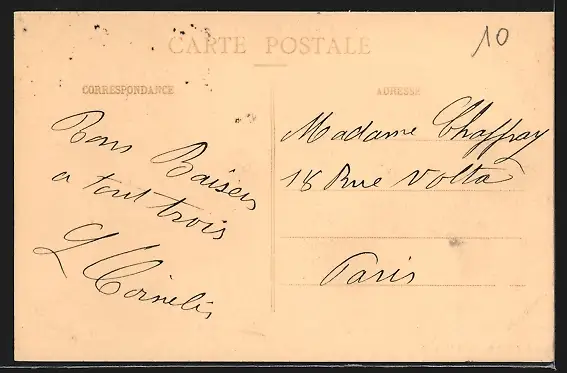 CARTE POSTALE
10
CORRESPONDANCE
ADRESSE
Bons Baisers
a tout trois
L Cornelis
Madame Chaffray
18 Rue Volta
Paris